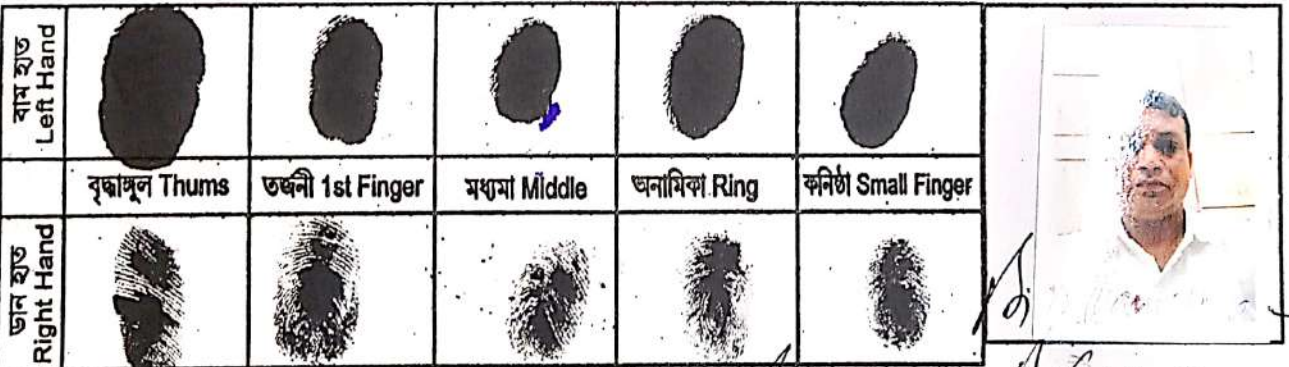 বাম হাত
Left Hand
বৃদ্ধাঙ্গুল Thums
তর্জনী 1st Finger
মধ্যমা Middle
অনামিকা Ring
কনিষ্ঠা Small Finger
ডান হাত
Right Hand